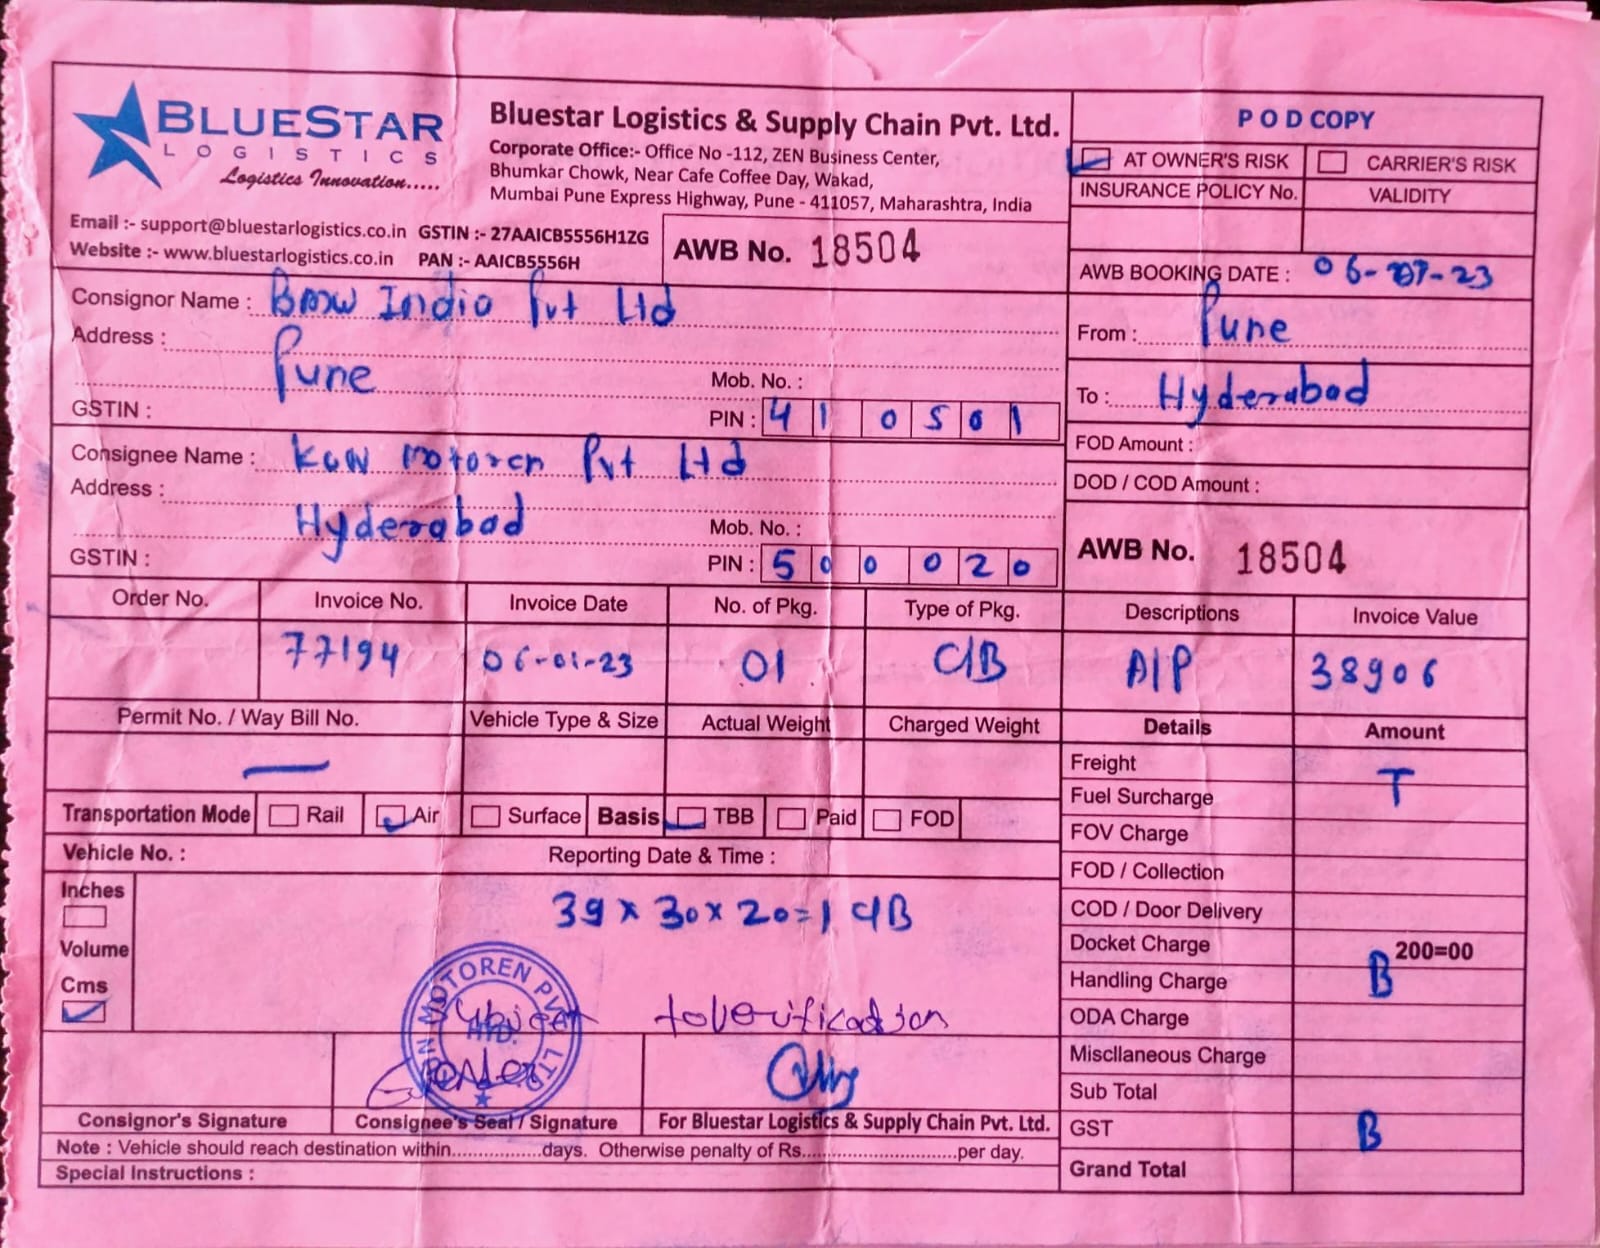 BLUESTAR
LOGISTICS
Logistics Innovation.....
Bluestar Logistics & Supply Chain Pvt. Ltd.
Corporate Office:- Office No -112, ZEN Business Center,
Bhumkar Chowk, Near Cafe Coffee Day, Wakad,
Mumbai Pune Express Highway, Pune - 411057, Maharashtra, India
Email :- support@bluestarlogistics.co.in GSTIN :- 27AAICB5556H1ZG
Website :- www.bluestarlogistics.co.in PAN :- AAICB5556H
AWB No. 18504
P O D COPY
AT OWNER'S RISK CARRIER'S RISK
INSURANCE POLICY No. VALIDITY
AWB BOOKING DATE : 06- -23
Consignor Name : BMW India Pvt Ltd
Address :
Pune
Mob. No. :
GSTIN :
PIN : 410501
From : Pune
To : Hyderabad
FOD Amount :
DOD / COD Amount :
Consignee Name : KUN Motoren Pvt Ltd
Address :
Hyderabad
Mob. No. :
GSTIN :
PIN : 500020
AWB No. 18504
Order No. Invoice No. Invoice Date No. of Pkg. Type of Pkg. Descriptions Invoice Value
77194 06-01-23 01 C/B A/P 38906
Permit No. / Way Bill No. Vehicle Type & Size Actual Weight Charged Weight Details Amount
Freight
T
Fuel Surcharge
Transportation Mode Rail Air Surface Basis TBB Paid FOD
FOV Charge
Vehicle No. : Reporting Date & Time :
FOD / Collection
Inches
39 x 30 x 20 = 1 C/B
COD / Door Delivery
Volume
Docket Charge 200=00
B
Cms
Handling Charge
MOTOREN PVT. LTD.
HYD.
Subject to verification
ODA Charge
Miscllaneous Charge
Sub Total
Consignor's Signature Consignee's Seal / Signature For Bluestar Logistics & Supply Chain Pvt. Ltd.
GST B
Note : Vehicle should reach destination within................days. Otherwise penalty of Rs.............................per day.
Grand Total
Special Instructions :